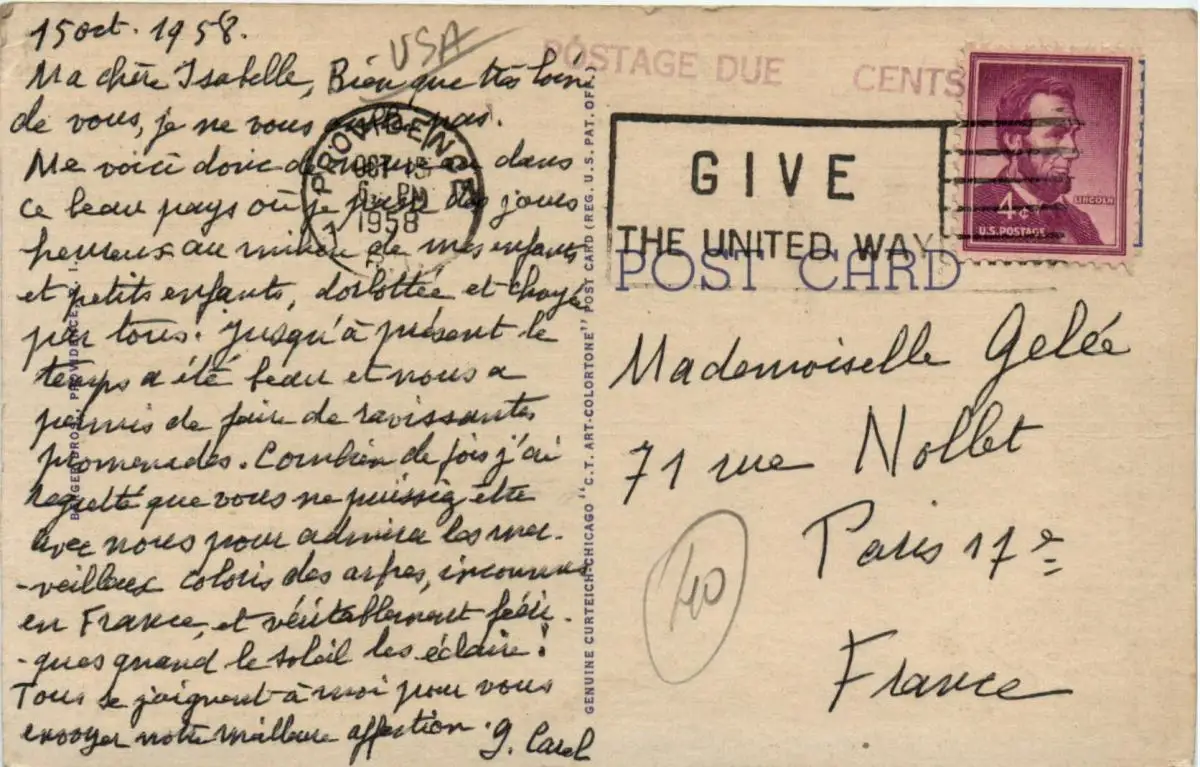 15 oct. 1958.
USA
Ma chère Isabelle, Bien que très loin
de vous, je ne vous oublie pas.
Me voici donc de nouveau dans
ce beau pays où je passe des jours
heureux au milieu de mes enfants
et petits enfants, dorlottée et choyée
par tous. Jusqu'à présent le
temps a été beau et nous a
permis de faire de ravissantes
promenades. Combien de fois j'ai
regretté que vous ne puissiez être
avec nous pour admirer les mer-
-veilleux coloris des arbres, inconnus
en France, et véritablement féeri-
-ques quand le soleil les éclaire!
Tous se joignent à moi pour vous
envoyer notre meilleure affection. G. Carel
PROVIDENCE
OCT 15
6 PM
1958
R.I.
BERGER BROS., PROVIDENCE, R. I.
GENUINE CURTEICH-CHICAGO "C. T. ART-COLORTONE" POST CARD (REG. U. S. PAT. OFF.)
POSTAGE DUE CENTS
GIVE
THE UNITED WAY
POST CARD
LINCOLN
4¢
U.S. POSTAGE
Mademoiselle Gelée
71 rue Nollet
Paris 17e
France
40